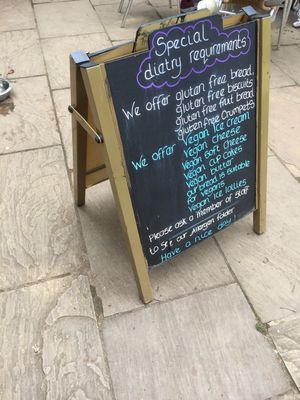 Special
diatry requirements
We offer gluten free bread,
gluten free biscuits
gluten free fruit bread
gluten free crumpets
We offer Vegan Ice Cream
Vegan cheese
Vegan soft cheese
Vegan cup cakes
Vegan butter
our bread is suitable
for vegans
Vegan ice lollies
Please ask a member of staff
to see our allergen folder
Have a nice day!